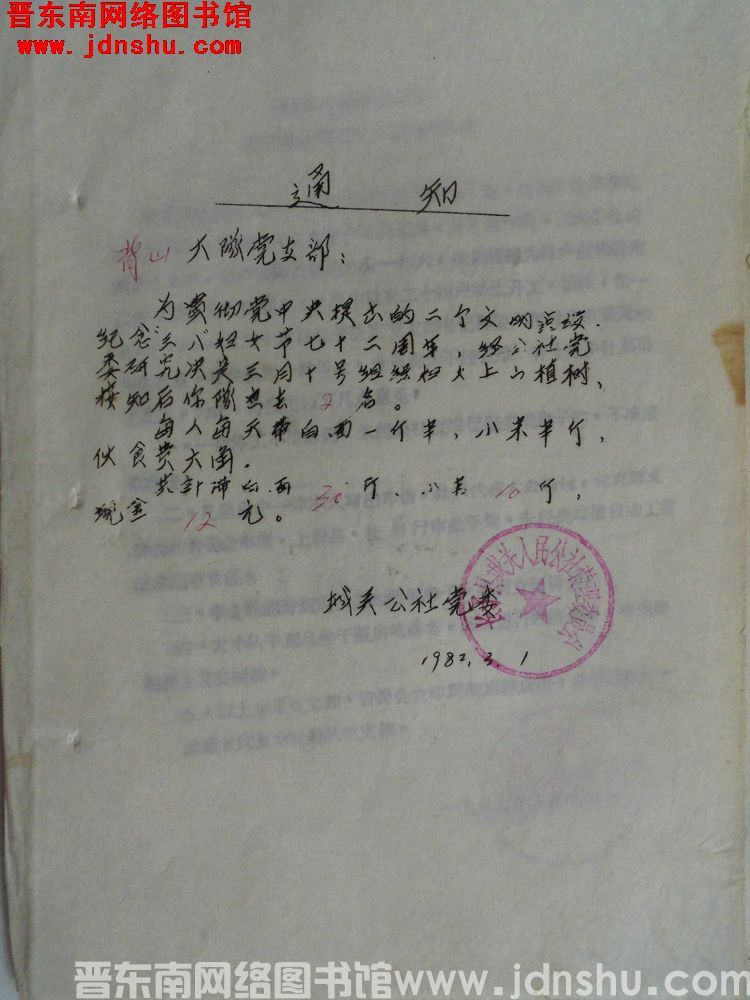 晋东南网络图书馆
www.jdnshu.com
通 知
背山大队党支部：
为贯彻党中央提出的二个文明建设．
纪念"三八"妇女节七十二周年，经公社党
委研究决定三月十号组织妇女上山植树，
接知后你队去 2 名。
每人每天带白面一斤半，小米半斤，
伙食费六角．
共计带白面 30 斤，小米 10 斤，
现金 12 元。
城关公社党委
1982.3.1
城关人民公社管理委员会
晋东南网络图书馆www.jdnshu.com